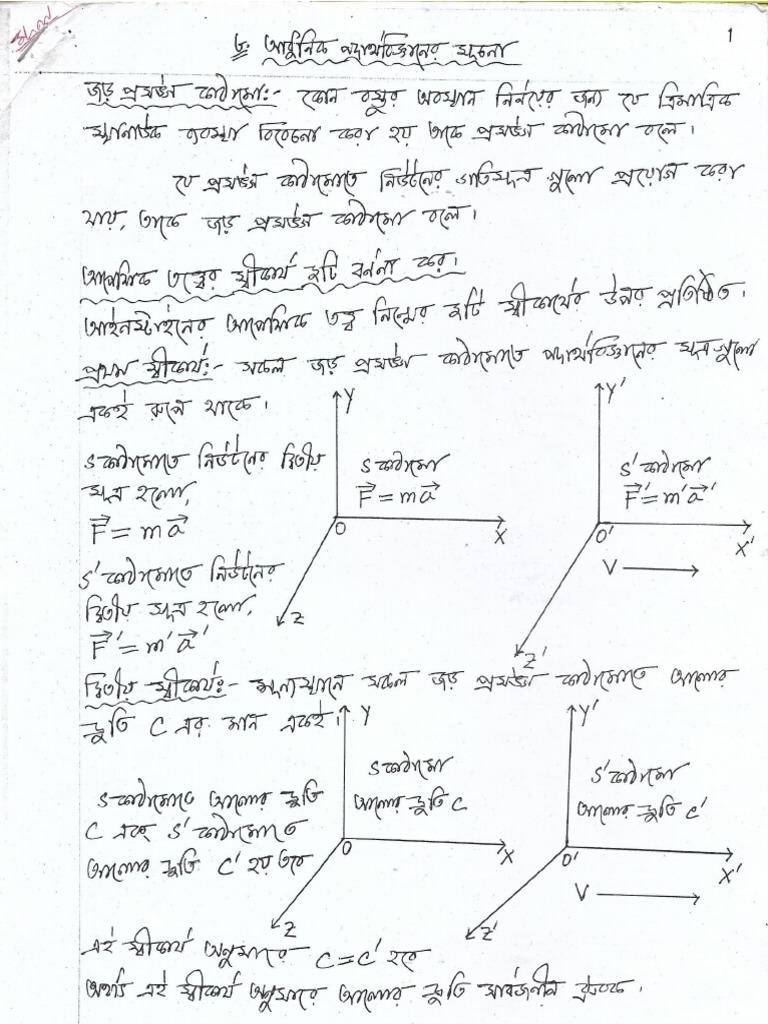 1
৮. আধুনিক পদার্থবিজ্ঞানের সূচনা
জড় প্রসঙ্গ কাঠামো:- কোন বস্তুর অবস্থান নির্ণয়ের জন্য যে ত্রিমাত্রিক
স্থানাঙ্ক ব্যবস্থা বিবেচনা করা হয় তাকে প্রসঙ্গ কাঠামো বলে।
যে প্রসঙ্গ কাঠামোতে নিউটনের গতিসূত্র গুলো প্রয়োগ করা
যায়, তাকে জড় প্রসঙ্গ কাঠামো বলে।
আপেক্ষিক তত্ত্বের স্বীকার্য দুটি বর্ননা কর।
আইনস্টাইনের আপেক্ষিক তত্ত্ব নিম্নের দুটি স্বীকার্যের উপর প্রতিষ্ঠিত।
প্রথম স্বীকার্য:- সকল জড় প্রসঙ্গ কাঠামোতে পদার্থবিজ্ঞানের সূত্রগুলো
একই রূপে থাকে।
Y
Y′
S কাঠামোতে নিউটনের দ্বিতীয়
S কাঠামো
S′ কাঠামো
সূত্র হলো,
F⃗ = ma⃗
F⃗′ = m′a⃗′
F⃗ = ma⃗
O
X
O′
X′
S′ কাঠামোতে নিউটনের
V
দ্বিতীয় সূত্র হলো,
Z
F⃗′ = m′a⃗′
Z′
দ্বিতীয় স্বীকার্য:- শূন্যস্থানে সকল জড় প্রসঙ্গ কাঠামোতে আলোর
দ্রুতি C এর মান একই।
Y
Y′
S কাঠামো
S′ কাঠামো
S কাঠামোতে আলোর দ্রুতি
আলোর দ্রুতি C
আলোর দ্রুতি C′
C এবং S′ কাঠামোতে
O
X
O′
X′
আলোর দ্রুতি C′ হয় তবে
V
Z
Z′
এই স্বীকার্য অনুসারে C = C′ হবে
অর্থাৎ এই স্বীকার্য অনুসারে আলোর দ্রুতি সার্বজনীন ধ্রুবক।